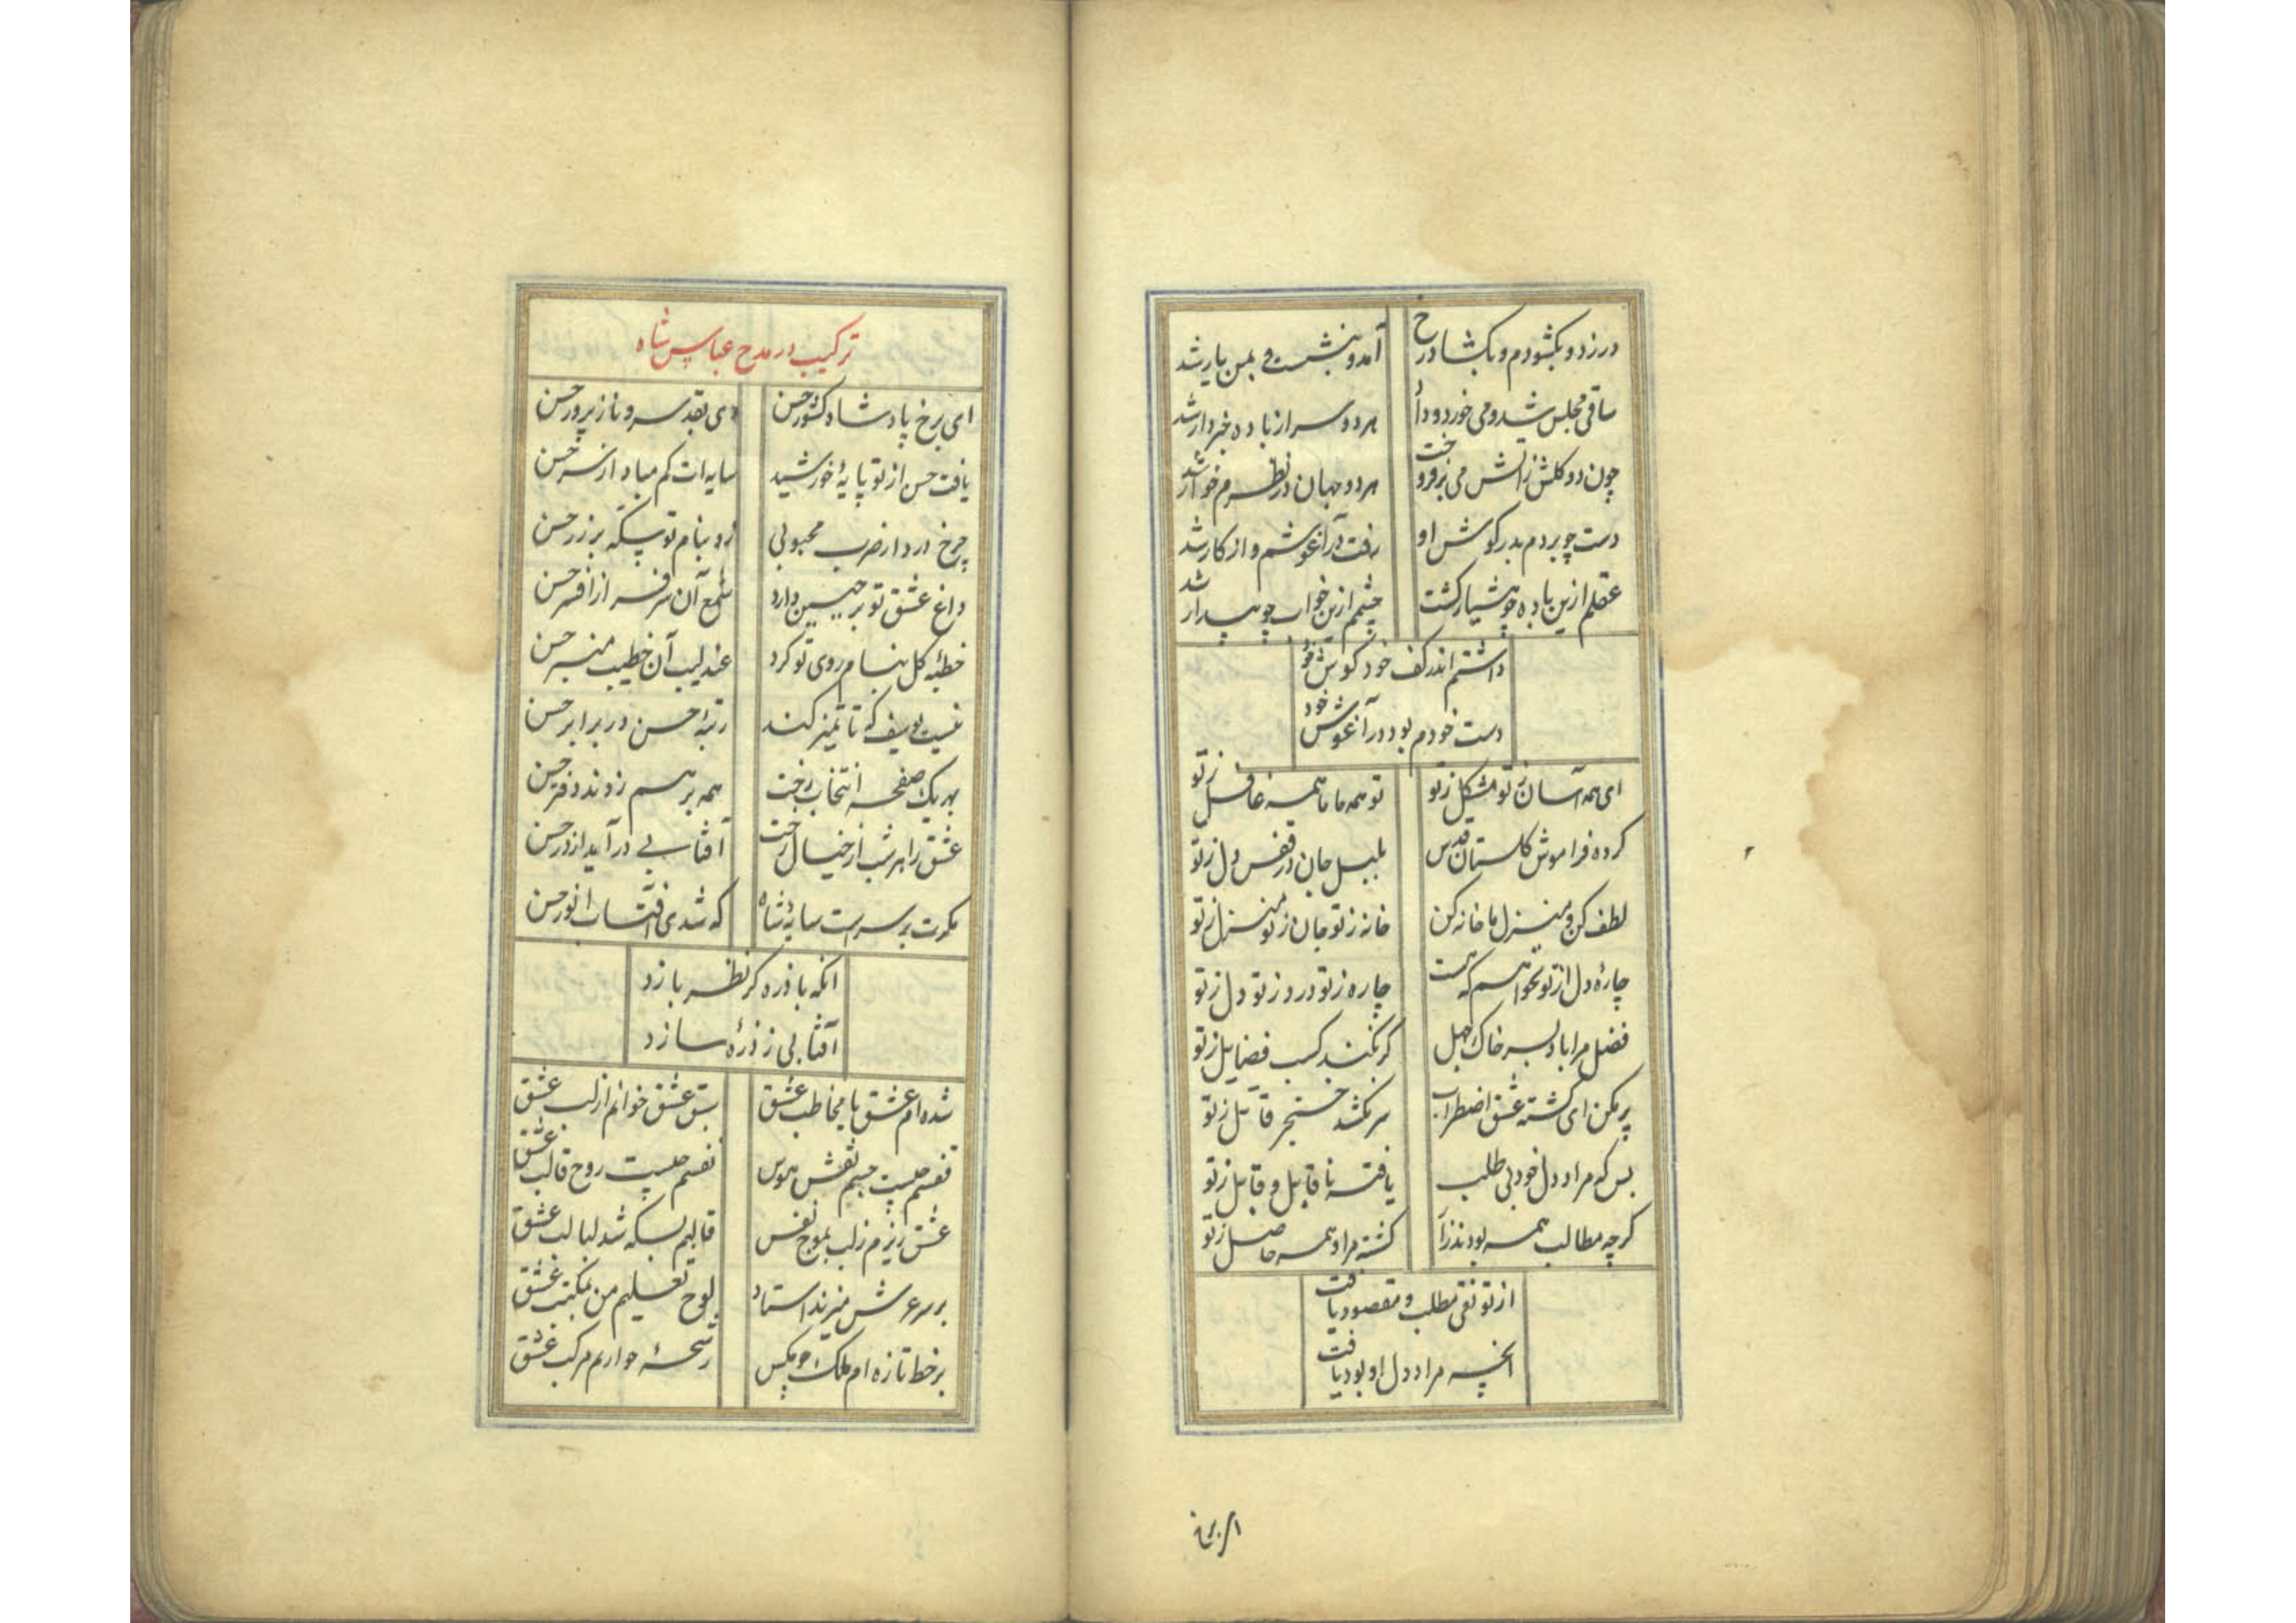 در زد و بگشودم و بگشاد رخ
آمد و بنشست و بمن یار شد
ساقی مجلس شد و می خورد و داد
هر دو سر از باده خبردار شد
چون دو گلش ز آتش می برفروخت
هر دو جهان در نظرم خوار شد
دست چو بردم بدر گوش او
رفت در آغوشم و از کار شد
عقلم ازین باده چو هشیار گشت
چشم ازین خواب چو بیدار شد
داشتم اندر کف خود گوش خود
دست خودم بود در آغوش خود
ای همه آسان ز تو مشکل ز تو
تو همه ما ما همه غافل ز تو
کرده فراموش گلستان قدس
بلبل جان در قفس دل ز تو
لطف کن و منزل ما خانه کن
خانه ز تو جان ز تو منزل ز تو
چاره دل از تو نخواهم که هست
چاره ز تو درد ز تو دل ز تو
فضل مرا باد بسر خاک جهل
گر نکند کسب فضایل ز تو
پر مکن ای کشته عشق اضطراب
سر نکشد خنجر قاتل ز تو
بس که مراد دل خود بی طلب
یافته ناقابل و قابل ز تو
گرچه مطالب همه بودند زاد
گشته مراد همه حاصل ز تو
از تو نقی مطلب و مقصود یافت
آنچه مراد دل او بود یافت
ترکیب در مدح عباس شاه
ای برخ پادشاه کشور حسن
وی بقد سرو ناز پرور حسن
یافت حسن از تو پایهٔ خورشید
سایه ات کم مباد از سر حسن
چرخ در دار ضرب محبوبی
زد بنام تو سکه بر زر حسن
داغ عشق تو بر جبین دارد
شمع آن سرفراز افسر حسن
خطبهٔ گل بنام روی تو کرد
عندلیب آن خطیب منبر حسن
نیست یوسف که تا تمیز کند
رتبهٔ حسن در برابر حسن
بهر یک صفحه انتخاب رخت
همه بر هم زدند دفتر حسن
عشق را هر شب از خیال رخت
آفتابی در آید از در حسن
مگرت بر سر است سایهٔ شاه
که شدی آفتاب انور حسن
آنکه با ذره گر نظر بازد
آفتابی ز ذرهٔ سازد
شده ام عشق با مخاطب عشق
سبق عشق خوانم از لب عشق
نفسم چیست جسم نقش هوس
نفسم چیست روح قالب عشق
عشق ریزم ز لب بموج نفس
قالبم بسکه شد لبالب عشق
بر سر عرش میزند استاد
لوح تعلیم من بمکتب عشق
بر خط تازه ام ملک چو مگس
رشحهٔ خوار مرکب عشق